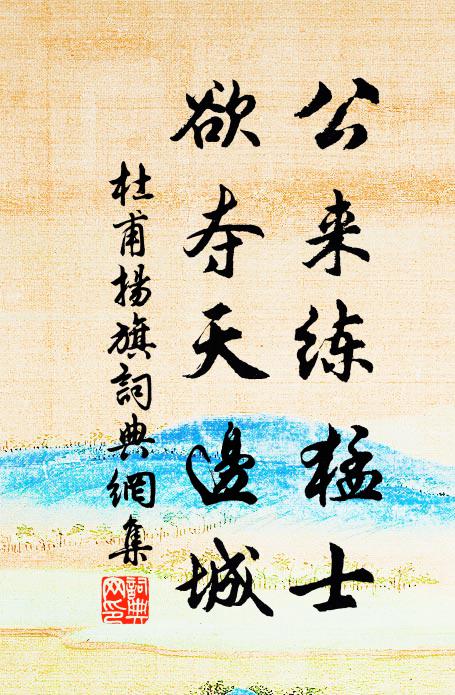 公来练猛士
欲夺天邊城
杜甫揚旗詞典網集